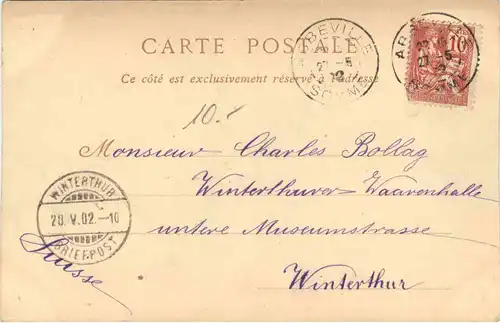 CARTE POSTALE
Ce côté est exclusivement réservé à l'adresse
ABBEVILLE
27 -5
02
SOMME
10
27 -5
10.-
Monsieur Charles Bollag
Winterthurer-Waarenhalle
untere Museumstrasse
Winterthur
Suisse
WINTERTHUR
28.V.02.-10
BRIEFPOST